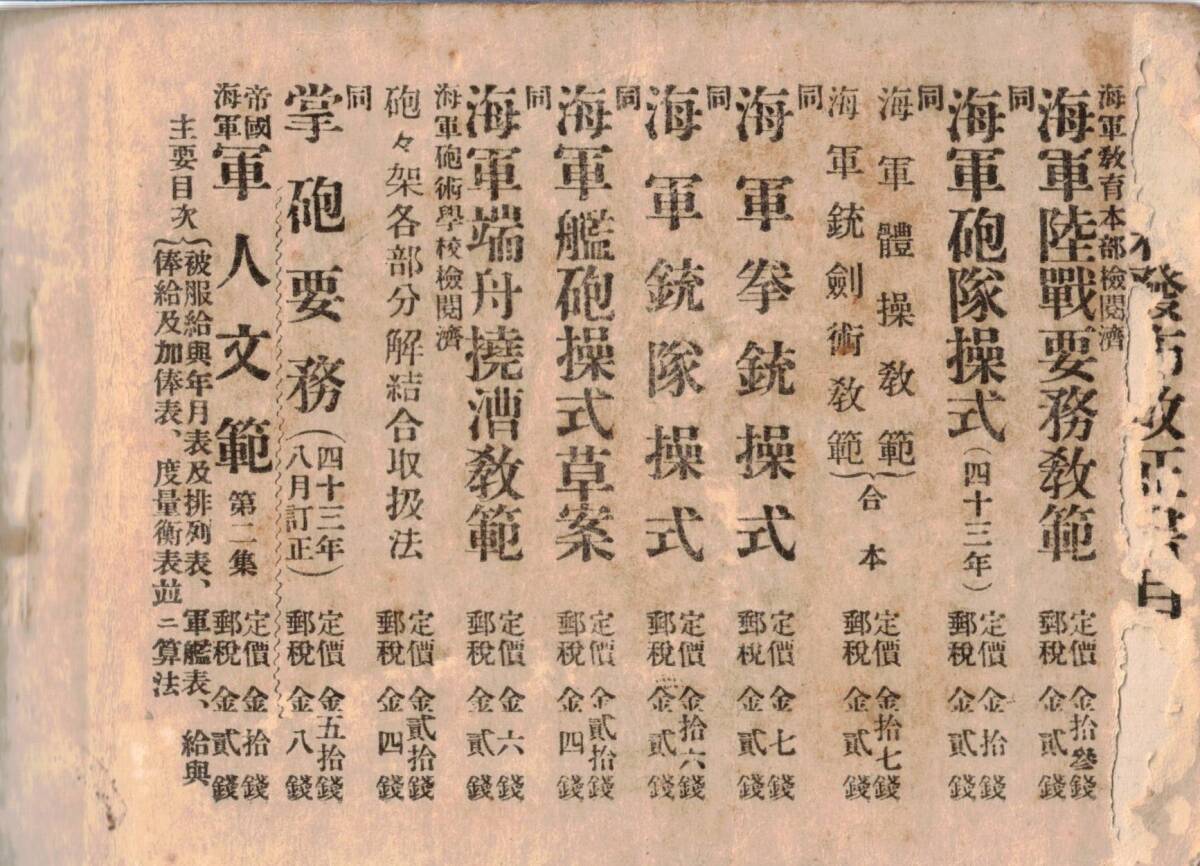 海軍教育本部檢閲濟
海軍陸戰要務教範
定價金拾參錢
郵税金貳錢
同
海軍砲隊操式（四十三年）
定價金拾錢
郵税金貳錢
同
海軍體操教範
海軍銃劍術教範
合本
定價金拾七錢
郵税金貳錢
同
海軍拳銃操式
定價金七錢
郵税金貳錢
同
海軍銃隊操式
定價金拾六錢
郵税金貳錢
同
海軍艦砲操式草案
定價金貳拾錢
郵税金四錢
同
海軍端舟撓漕教範
定價金六錢
郵税金貳錢
海軍砲術學校檢閲濟
砲々架各部分解結合取扱法
定價金貳拾錢
郵税金四錢
同
掌砲要務（四十三年八月訂正）
定價金五拾錢
郵税金八錢
帝國海軍軍人文範第二集
定價金拾錢
郵税金貳錢
主要目次
被服給與年月表及排列表、軍艦表、給與
俸給及加俸表、度量衡表並ニ算法